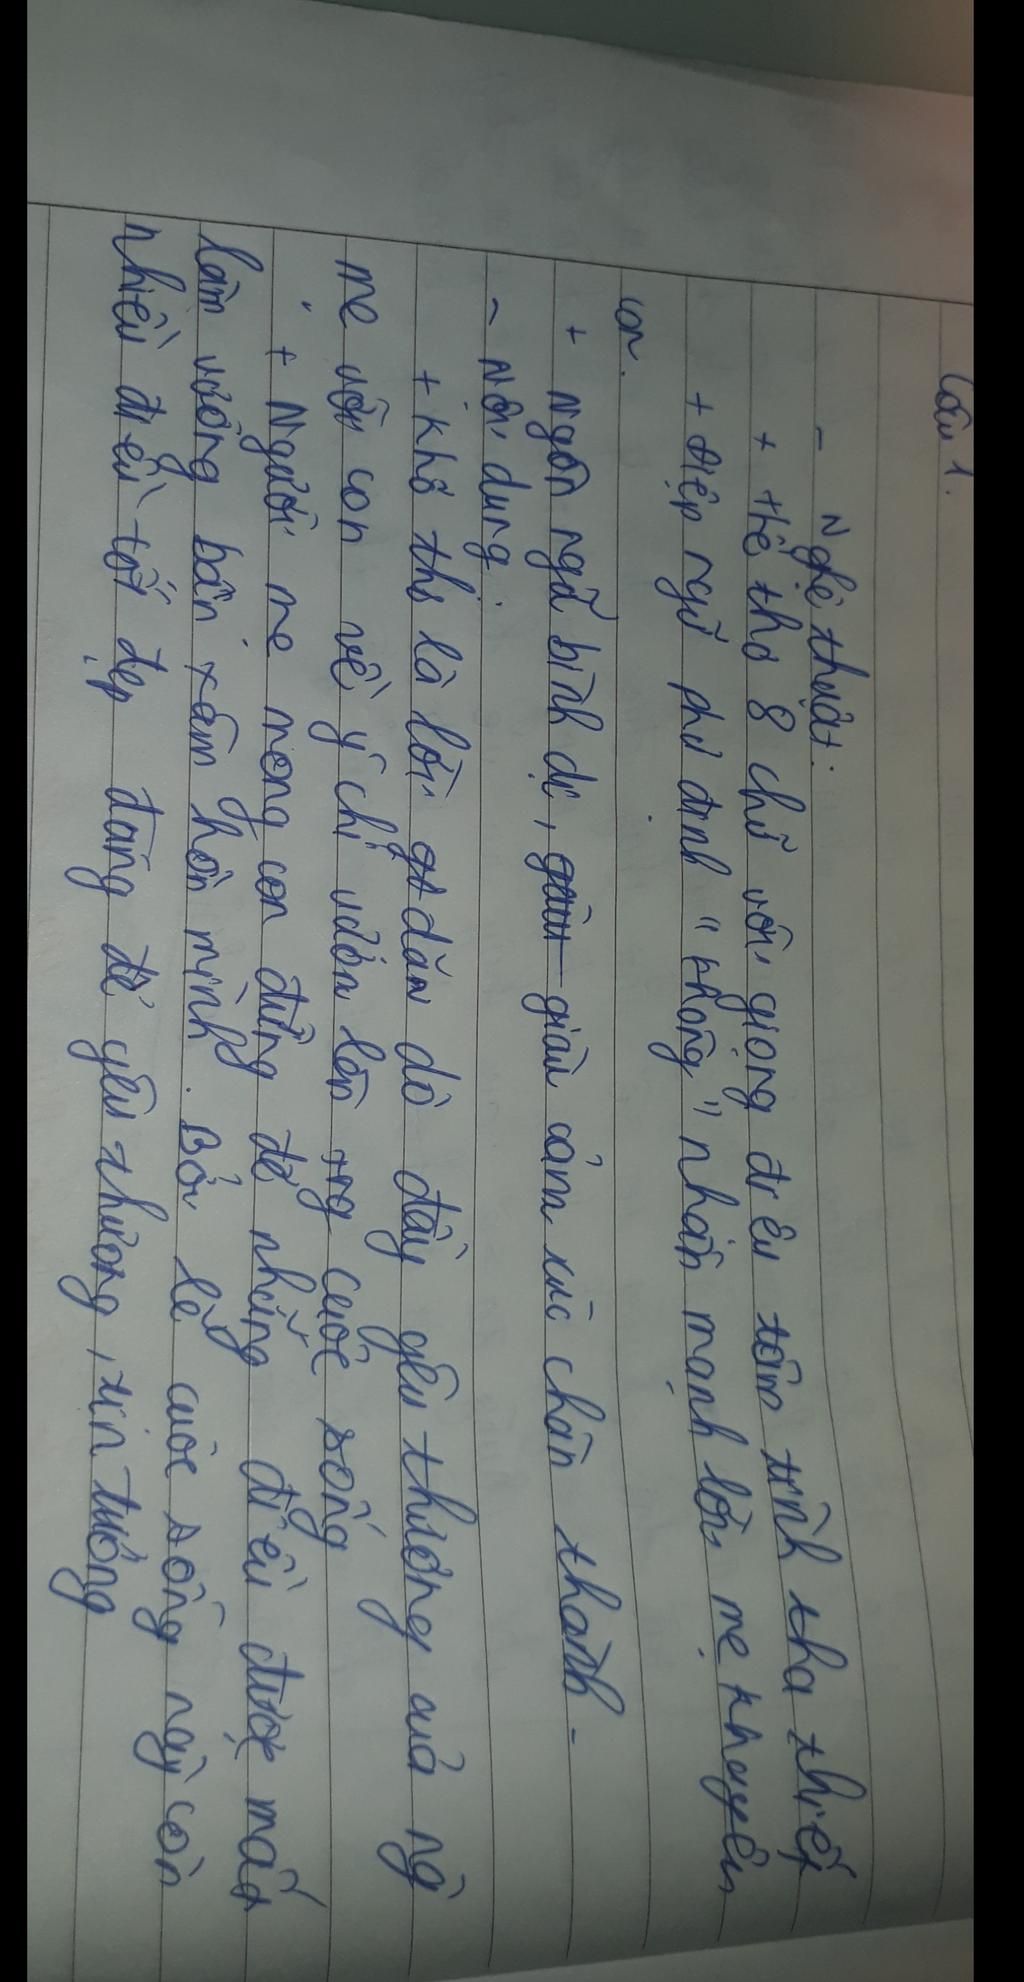 Câu 1.
- Nghệ thuật:
+ thể thơ 8 chữ với giọng điệu tâm tình tha thiết
+ điệp ngữ phủ định "không" nhấn mạnh lời mẹ khuyên
con.
+ Ngôn ngữ bình dị, giàu cảm xúc chân thành.
- Nội dung:
+ Khổ thơ là lời dặn dò đầy yêu thương của ng
mẹ với con về ý chí vươn lên trg cuộc sống
+ Người mẹ mong con đừng để những điều được mất
làm vướng bận xâm hồn mình. Bởi lẽ cuộc sống này còn
nhiều điều tốt đẹp đáng để yêu thương, tin tưởng